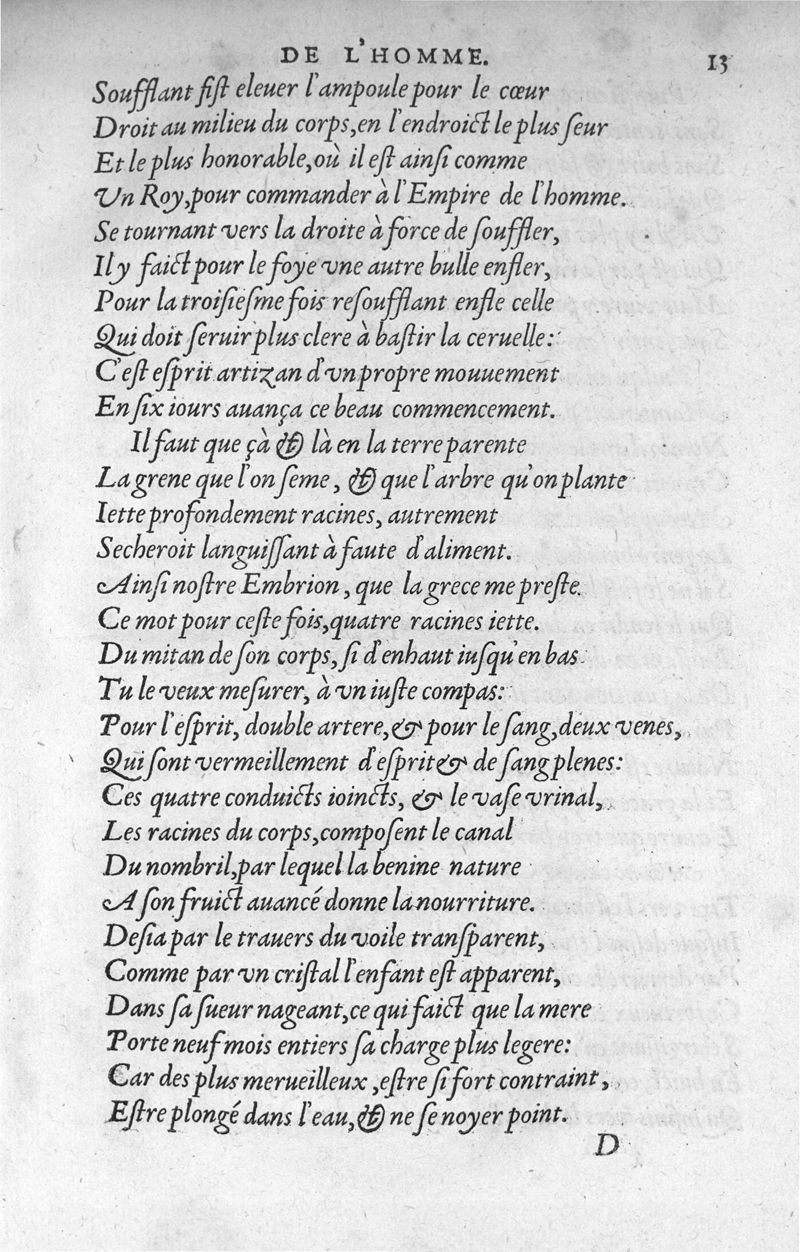 DE L'HOMME. 13
Soufflant fiſt eleuer l'ampoule pour le cœur
Droit au milieu du corps, en l'endroict le plus ſeur
Et le plus honorable, où il eſt ainſi comme
Vn Roy, pour commander à l'Empire de l'homme.
Se tournant vers la droite à force de ſouffler,
Il y faict pour le foye vne autre bulle enfler,
Pour la troiſieſme fois reſoufflant enfle celle
Qui doit ſeruir plus clere à baſtir la ceruelle:
C'eſt eſprit artizan d'vn propre mouuement
En ſix iours auança ce beau commencement.
Il faut que çà & là en la terre parente
La grene que l'on ſeme, & que l'arbre qu'on plante
Iette profondement racines, autrement
Secheroit languiſſant à faute d'aliment.
Ainſi noſtre Embrion, que la grece me preſte
Ce mot pour ceſte fois, quatre racines iette.
Du mitan de ſon corps, ſi d'enhaut iuſqu'en bas
Tu le veux meſurer, à vn iuſte compas:
Pour l'eſprit, double artere, & pour le ſang, deux venes,
Qui ſont vermeillement d'eſprit & de ſang plenes:
Ces quatre conduicts ioincts, & le vaſe vrinal,
Les racines du corps, compoſent le canal
Du nombril, par lequel la benine nature
A ſon fruict auancé donne la nourriture.
Deſia par le trauers du voile tranſparent,
Comme par vn criſtal l'enfant eſt apparent,
Dans ſa ſueur nageant, ce qui faict que la mere
Porte neuf mois entiers ſa charge plus legere:
Car des plus merueilleux, eſtre ſi fort contraint,
Eſtre plongé dans l'eau, & ne ſe noyer point.
D